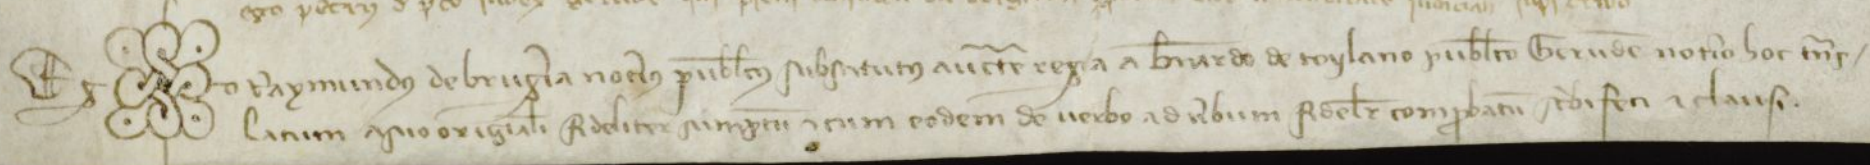 Ego Raymundus de brug̃ia notĩus publ̃cus substitutus auct̃e regia a Bñardo de toylano publ̃co Gerunde notio hoc tñs/
latum a suo origiãli fideliter sumptũ et cum eodem de uerbo ad ũbum fidel̃r comprobatũ sc̃bi feci et clausi.